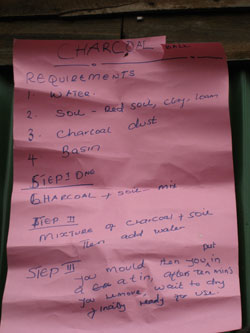 CHARCOAL
REQUIREMENTS
1. WATER
2. Soil - Red soil, clay-loam
3. Charcoal dust
4 Basin
STEP I
CHARCOAL + soil mix
STEP II
Mixture of charcoal + soil
Then add water
STEP III You mould then you put in
a tin, after ten min's
You remove wait to dry
finally ready for use.